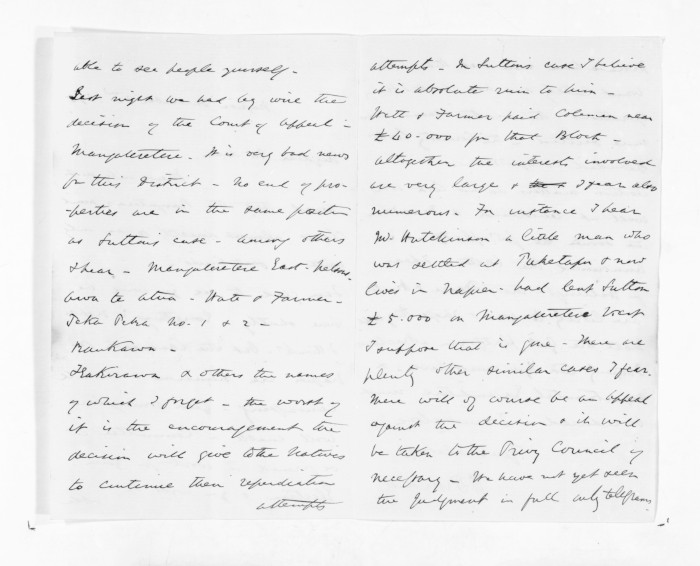 able to see people yourself -
Last night we had by wire the
decision of the Court of Appeal -
Mangateretere - It is very bad news
for this District - No end of pro-
-perties are in the same position
as Suttons case - Among others
I hear - Mangateretere East -
awa te atua - Watt & Farmer -
Teka Teka No. 1 & 2 -
Raukawa -
& others the names
of which I forget - the worst of
it is the encouragement the
decision will give to the Natives
to continue their repudiation
attempts
attempts - In Suttons case I believe
it is absolute ruin to him -
Watt & Farmer paid Coleman near
£40.000 for that Block -
altogether the interests involved
are very large & I fear also
numerous - For instance I hear
Mr Hutchinson a little man who
was settled at Puketapu & now
lives in Napier - had lent Sutton
£5.000 on Mangateretere West
I suppose that is gone - There are
plenty other similar cases I fear.
There will of course be an appeal
against the decision & it will
be taken to the Privy Council if
necessary - We have not yet seen
the Judgment in full only telegrams